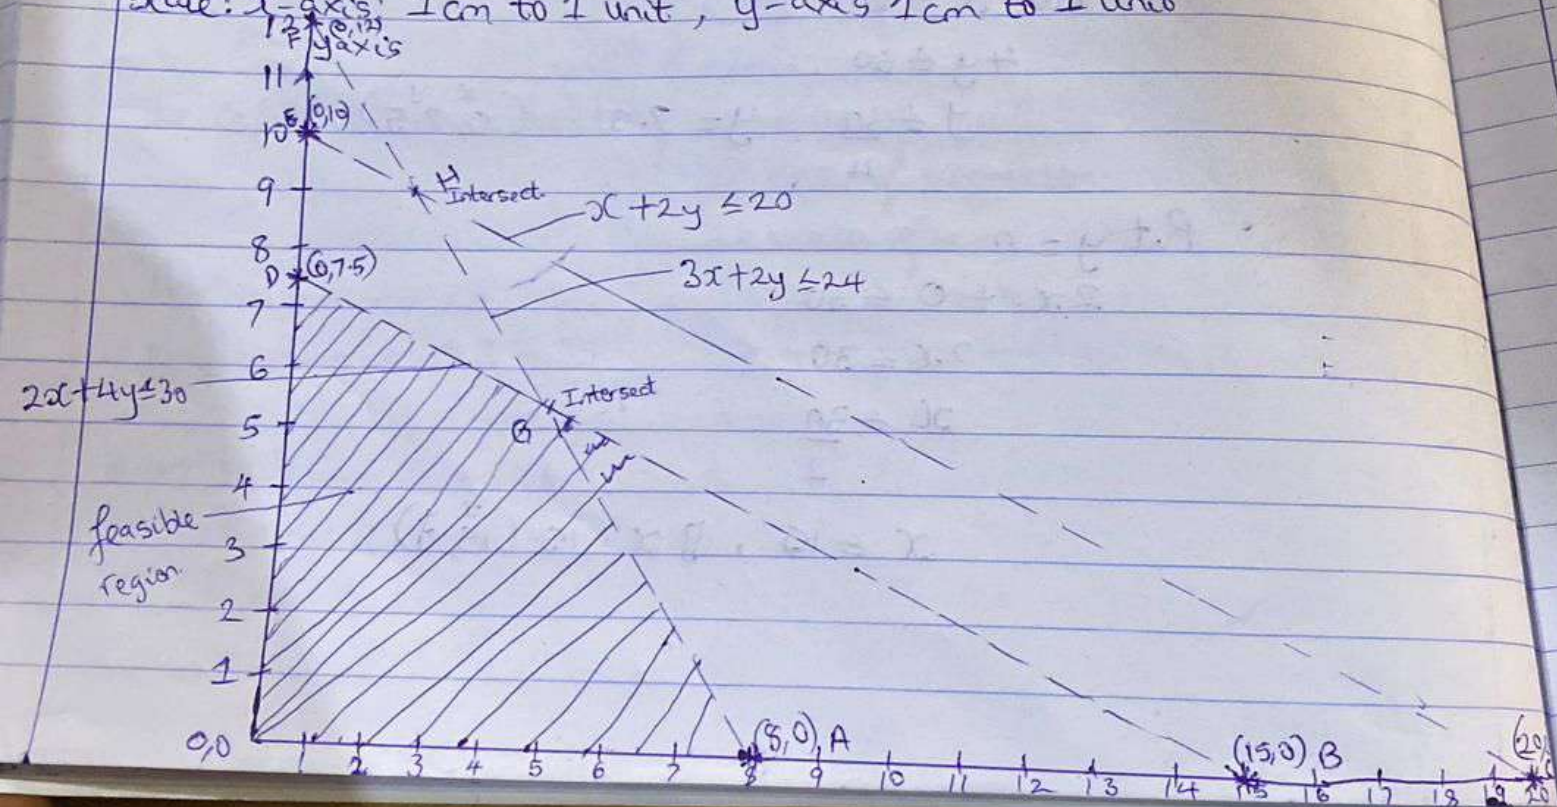 Scale: x-axis 1cm to 1 unit, y-axis 1cm to 1 unit
12 (0,12)
F y axis
11
E (0,10)
10
9
H Intersect.
x+2y ≤20
8
D (0,7.5)
3x+2y ≤24
7
6
2x+4y≤30
Intersect
5
G
4
feasible
region.
3
2
1
0,0
(8,0), A
(15,0) B
(20,
1 2 3 4 5 6 7 8 9 10 11 12 13 14 15 16 17 18 19 20